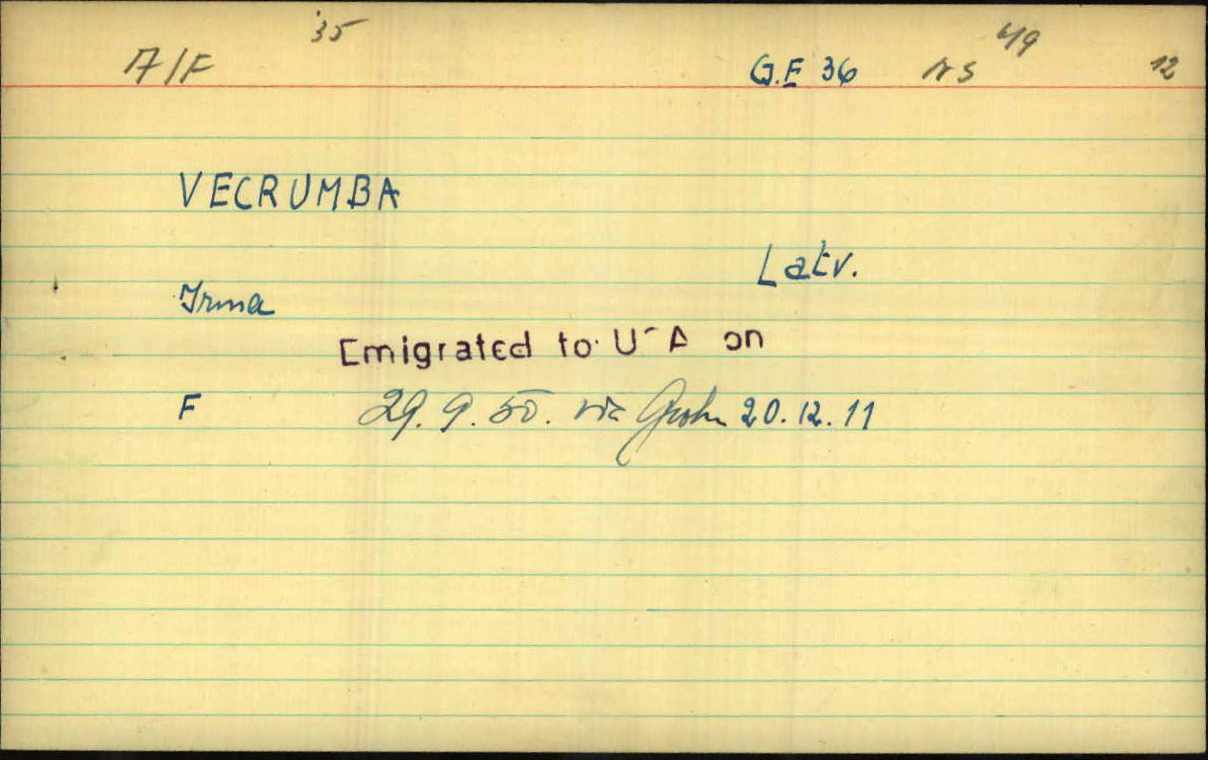 35 49
A/F G.E 36 NS 12
VECRUMBA
Latv.
Irma
Emigrated to USA on
F 29. 9. 50. via Grohn 20. 12. 11